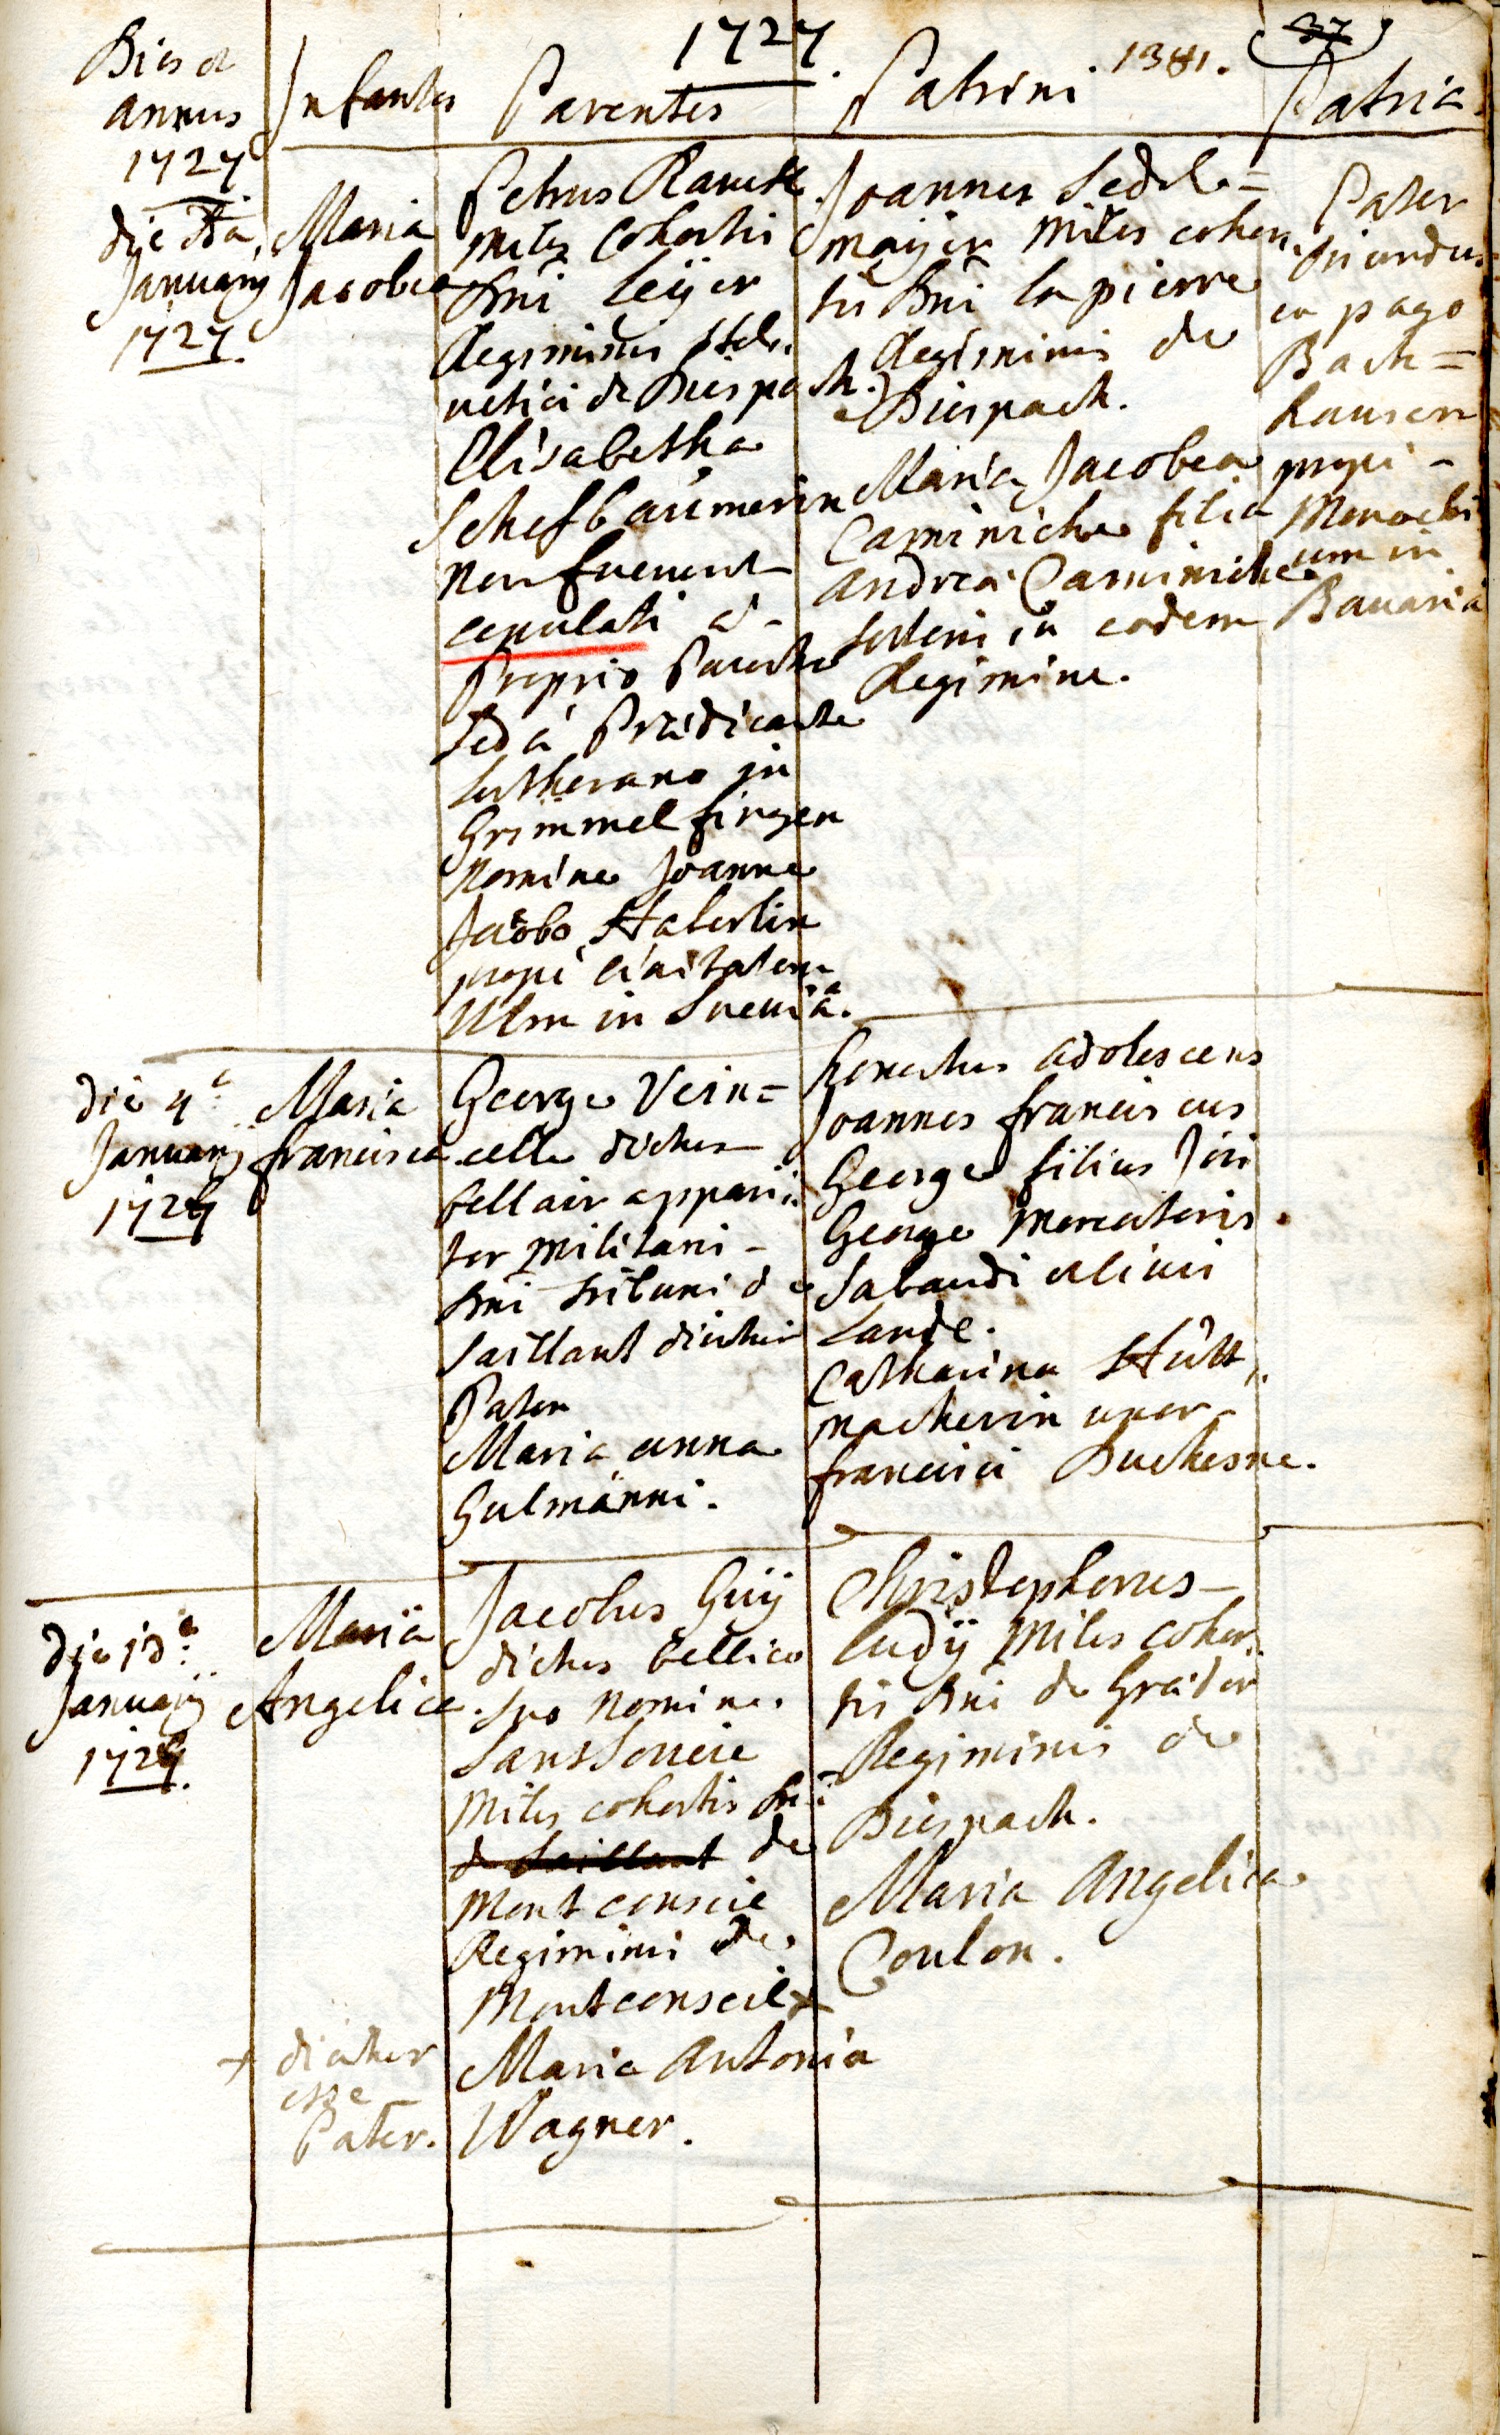 1727
1381.
37
Dies et
annus
1727
Infantes
Parentes
Patrini
Patria
die
Januarij
1727.
Maria
Jacobea
Petrus
miles cohortis
Dni Leijer
Regiminis Hel-
vetici de Diespach.
Elisabetha
Schefbaümerin
non fuerunt
copulati à
proprio Parocho
sed à Prædicante
Lutherano in
Grimmelfingen
nomine Joanne
Jacobo Haberlin
propè civitatem
Ulm in Suevia.
Joannes Sedel=
maÿer miles cohor-
tis Dni la pierre
Regiminis de
Diespach.
Maria Jacobea
Caminicha filia
Andreæ Caminiche
in eodem
Regimine.
Pater
oriundus
ex pago
Bach=
hausen
propè
Monachi
um in
Bavaria
die 4a
Januarij
1727
Maria
francisca
George Vein=
celle dictus
bellair appari-
tor militaris
Dni tribuni de
Saillant dicitur
Pater
Maria anna
Gulmänni.
honestus adolescens
Joannes franciscus
George filius Joîs
George mercatoris
Sabaudi
Lande.
Catharina Hütt
macherin uxor
francisci Duchesne.
die 13a
Januarij
1727.
Maria
Angelica
Jacobus Guÿ
dictus bellico
suo nomine
Sanssoucie
miles cohortis Dni
de Saillant de
Montconseie
Regiminis de
Montconseil +
Maria Antonia
Wagner.
+ dicitur
esse
Pater.
Christophorus
Ludÿ miles cohor
tis Dni de Gräder
Regiminis de
Diespach.
Maria Angelica
Coulon.